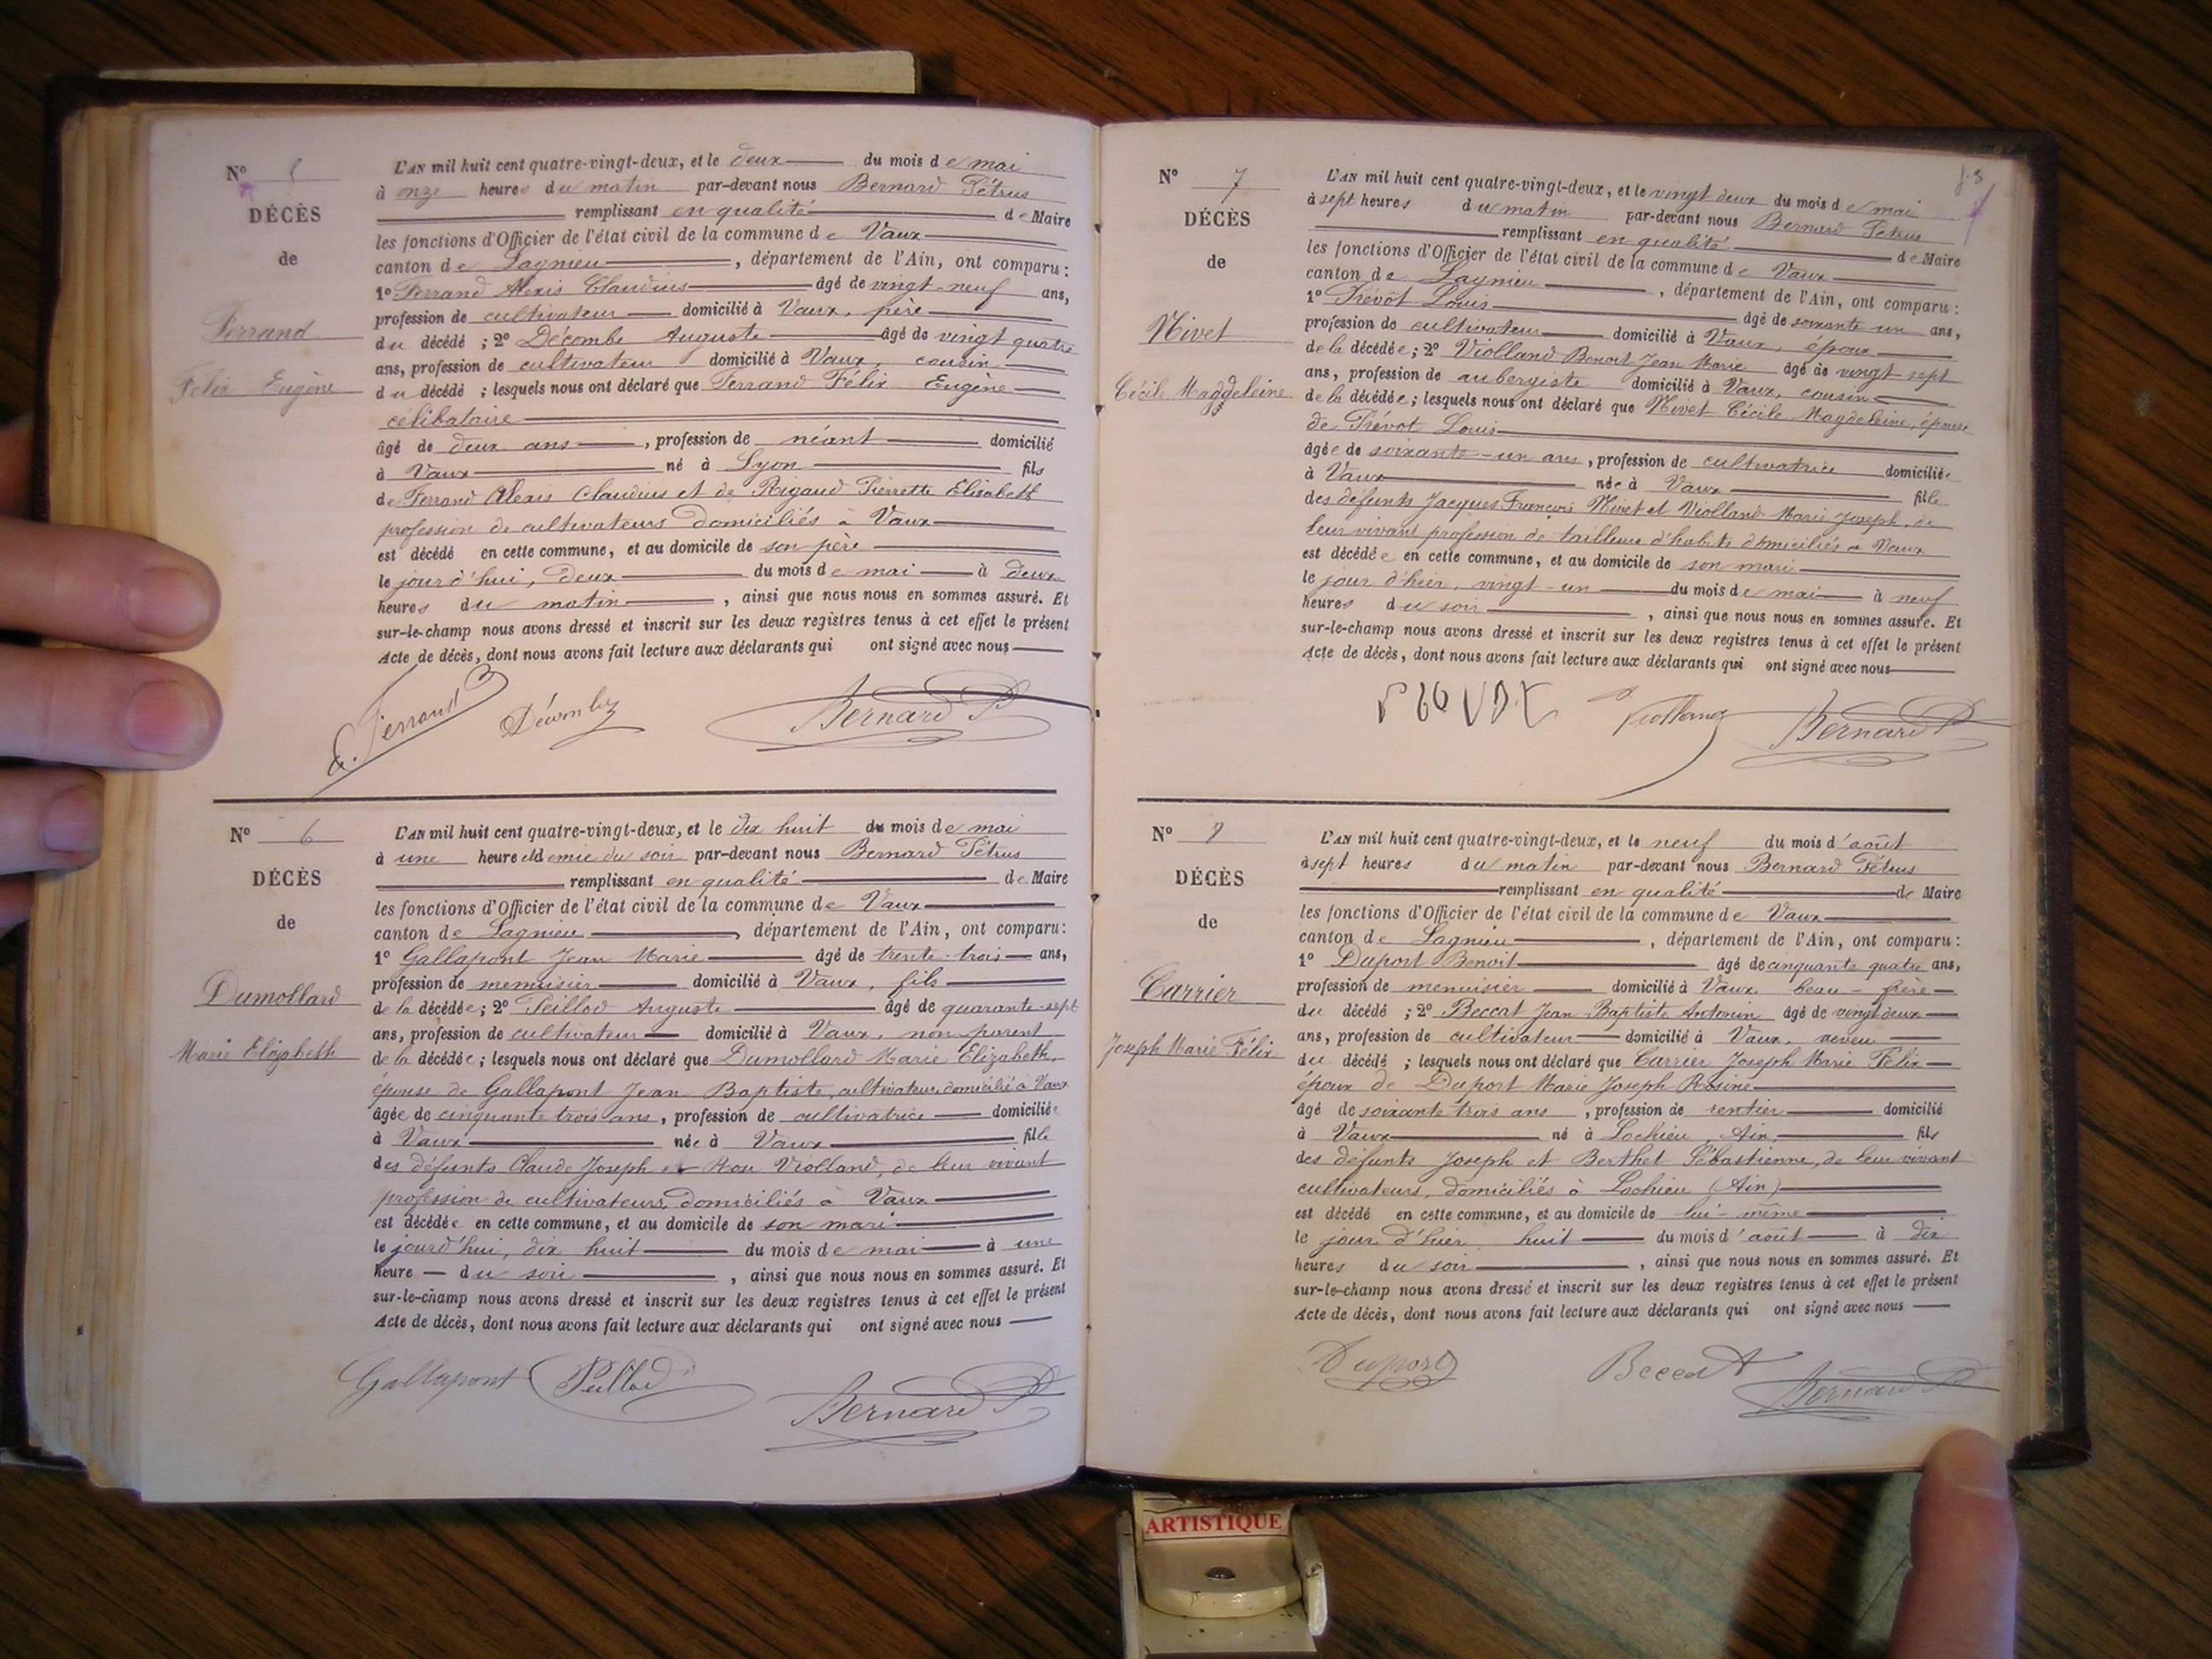 N° 5
DÉCÈS
de
Ferrand
Felix Eugène
L'AN mil huit cent quatre-vingt-deux, et le deux du mois de mai
à onze heures du matin par-devant nous Bernard Pétrus
remplissant en qualité de Maire
les fonctions d'Officier de l'état civil de la commune de Vaux
canton de Lagnieu, département de l'Ain, ont comparu :
1° Ferrand Alexis Claudius âgé de vingt-neuf ans,
profession de cultivateur domicilié à Vaux, père
du décédé ; 2° Décombe Auguste âgé de vingt quatre
ans, profession de cultivateur domicilié à Vaux, cousin
du décédé ; lesquels nous ont déclaré que Ferrand Félix Eugène
célibataire
âgé de deux ans, profession de néant domicilié
à Vaux né à Lyon fils
de Ferrand Alexis Claudius et de Rigaud Pierrette Elisabeth
profession de cultivateurs domiciliés à Vaux
est décédé en cette commune, et au domicile de son père
le jour d'hui, deux du mois de mai à deux
heures du matin, ainsi que nous nous en sommes assuré. Et
sur-le-champ nous avons dressé et inscrit sur les deux registres tenus à cet effet le présent
Acte de décès, dont nous avons fait lecture aux déclarants qui ont signé avec nous
Ferrand Décombe Bernard P
N° 6
DÉCÈS
de
Dumollard
Marie Elizabeth
L'AN mil huit cent quatre-vingt-deux, et le dix huit du mois de mai
à une heure et demie du soir par-devant nous Bernard Pétrus
remplissant en qualité de Maire
les fonctions d'Officier de l'état civil de la commune de Vaux
canton de Lagnieu, département de l'Ain, ont comparu:
1° Gallapont Jean Marie âgé de trente-trois ans,
profession de menuisier domicilié à Vaux, fils
de la décédée; 2° Peillod Auguste âgé de quarante-sept
ans, profession de cultivateur domicilié à Vaux, non parent
de la décédée; lesquels nous ont déclaré que Dumollard Marie Elizabeth,
épouse de Gallapont Jean Baptiste, cultivateur domicilié à Vaux
âgée de cinquante trois ans, profession de cultivatrice domiciliée
à Vaux née à Vaux fille
des défunts Claude Joseph et Rose Violland, de leur vivant
profession de cultivateurs, domiciliés à Vaux
est décédée en cette commune, et au domicile de son mari
le jourd'hui, dix huit du mois de mai à une
heure du soir, ainsi que nous nous en sommes assuré. Et
sur-le-champ nous avons dressé et inscrit sur les deux registres tenus à cet effet le présent
Acte de décès, dont nous avons fait lecture aux déclarants qui ont signé avec nous
Gallapont Peillod Bernard P
N° 7
DÉCÈS
de
Nivet
Cécile Magdeleine
L'AN mil huit cent quatre-vingt-deux, et le vingt deux du mois de mai
à sept heures du matin par-devant nous Bernard Pétrus
remplissant en qualité de Maire
les fonctions d'Officier de l'état civil de la commune de Vaux
canton de Lagnieu, département de l'Ain, ont comparu :
1° Prévôt Louis âgé de soixante un ans,
profession de cultivateur domicilié à Vaux, époux
de la décédée; 2° Violland Benoit Jean Marie âgé de vingt-sept
ans, profession de aubergiste domicilié à Vaux, cousin
de la décédée; lesquels nous ont déclaré que Nivet Cécile Magdeleine, épouse
de Prévot Louis
âgée de soixante-un ans, profession de cultivatrice domiciliée
à Vaux née à Vaux fille
des défunts Jacques François Nivet et Violland Marie Joseph, de
leur vivant profession de tailleurs d'habits domiciliés à Vaux
est décédée en cette commune, et au domicile de son mari
le jour d'hier, vingt-un du mois de mai à neuf
heures du soir, ainsi que nous nous en sommes assuré. Et
sur-le-champ nous avons dressé et inscrit sur les deux registres tenus à cet effet le présent
Acte de décès, dont nous avons fait lecture aux déclarants qui ont signé avec nous
Violland Bernard P
N° 8
DÉCÈS
de
Carrier
Joseph Marie Félix
L'AN mil huit cent quatre-vingt-deux, et le neuf du mois d'août
à sept heures du matin par-devant nous Bernard Pétrus
remplissant en qualité de Maire
les fonctions d'Officier de l'état civil de la commune de Vaux
canton de Lagnieu, département de l'Ain, ont comparu :
1° Duport Benoit âgé de cinquante quatre ans,
profession de menuisier domicilié à Vaux, beau-frère
du décédé ; 2° Beccat Jean Baptiste Antonin âgé de vingt deux
ans, profession de cultivateur domicilié à Vaux, neveu
du décédé ; lesquels nous ont déclaré que Carrier Joseph Marie Félix
époux de Duport Marie Joseph Rosine
âgé de soixante trois ans, profession de rentier domicilié
à Vaux né à Lochieu, Ain, fils
des défunts Joseph et Berthet Sébastienne, de leur vivant
cultivateurs, domiciliés à Lochieu (Ain)
est décédé en cette commune, et au domicile de lui-même
le jour d'hier, huit du mois d'août à dix
heures du soir, ainsi que nous nous en sommes assuré. Et
sur-le-champ nous avons dressé et inscrit sur les deux registres tenus à cet effet le présent
Acte de décès, dont nous avons fait lecture aux déclarants qui ont signé avec nous
Duport Beccat Bernard P
ARTISTIQUE